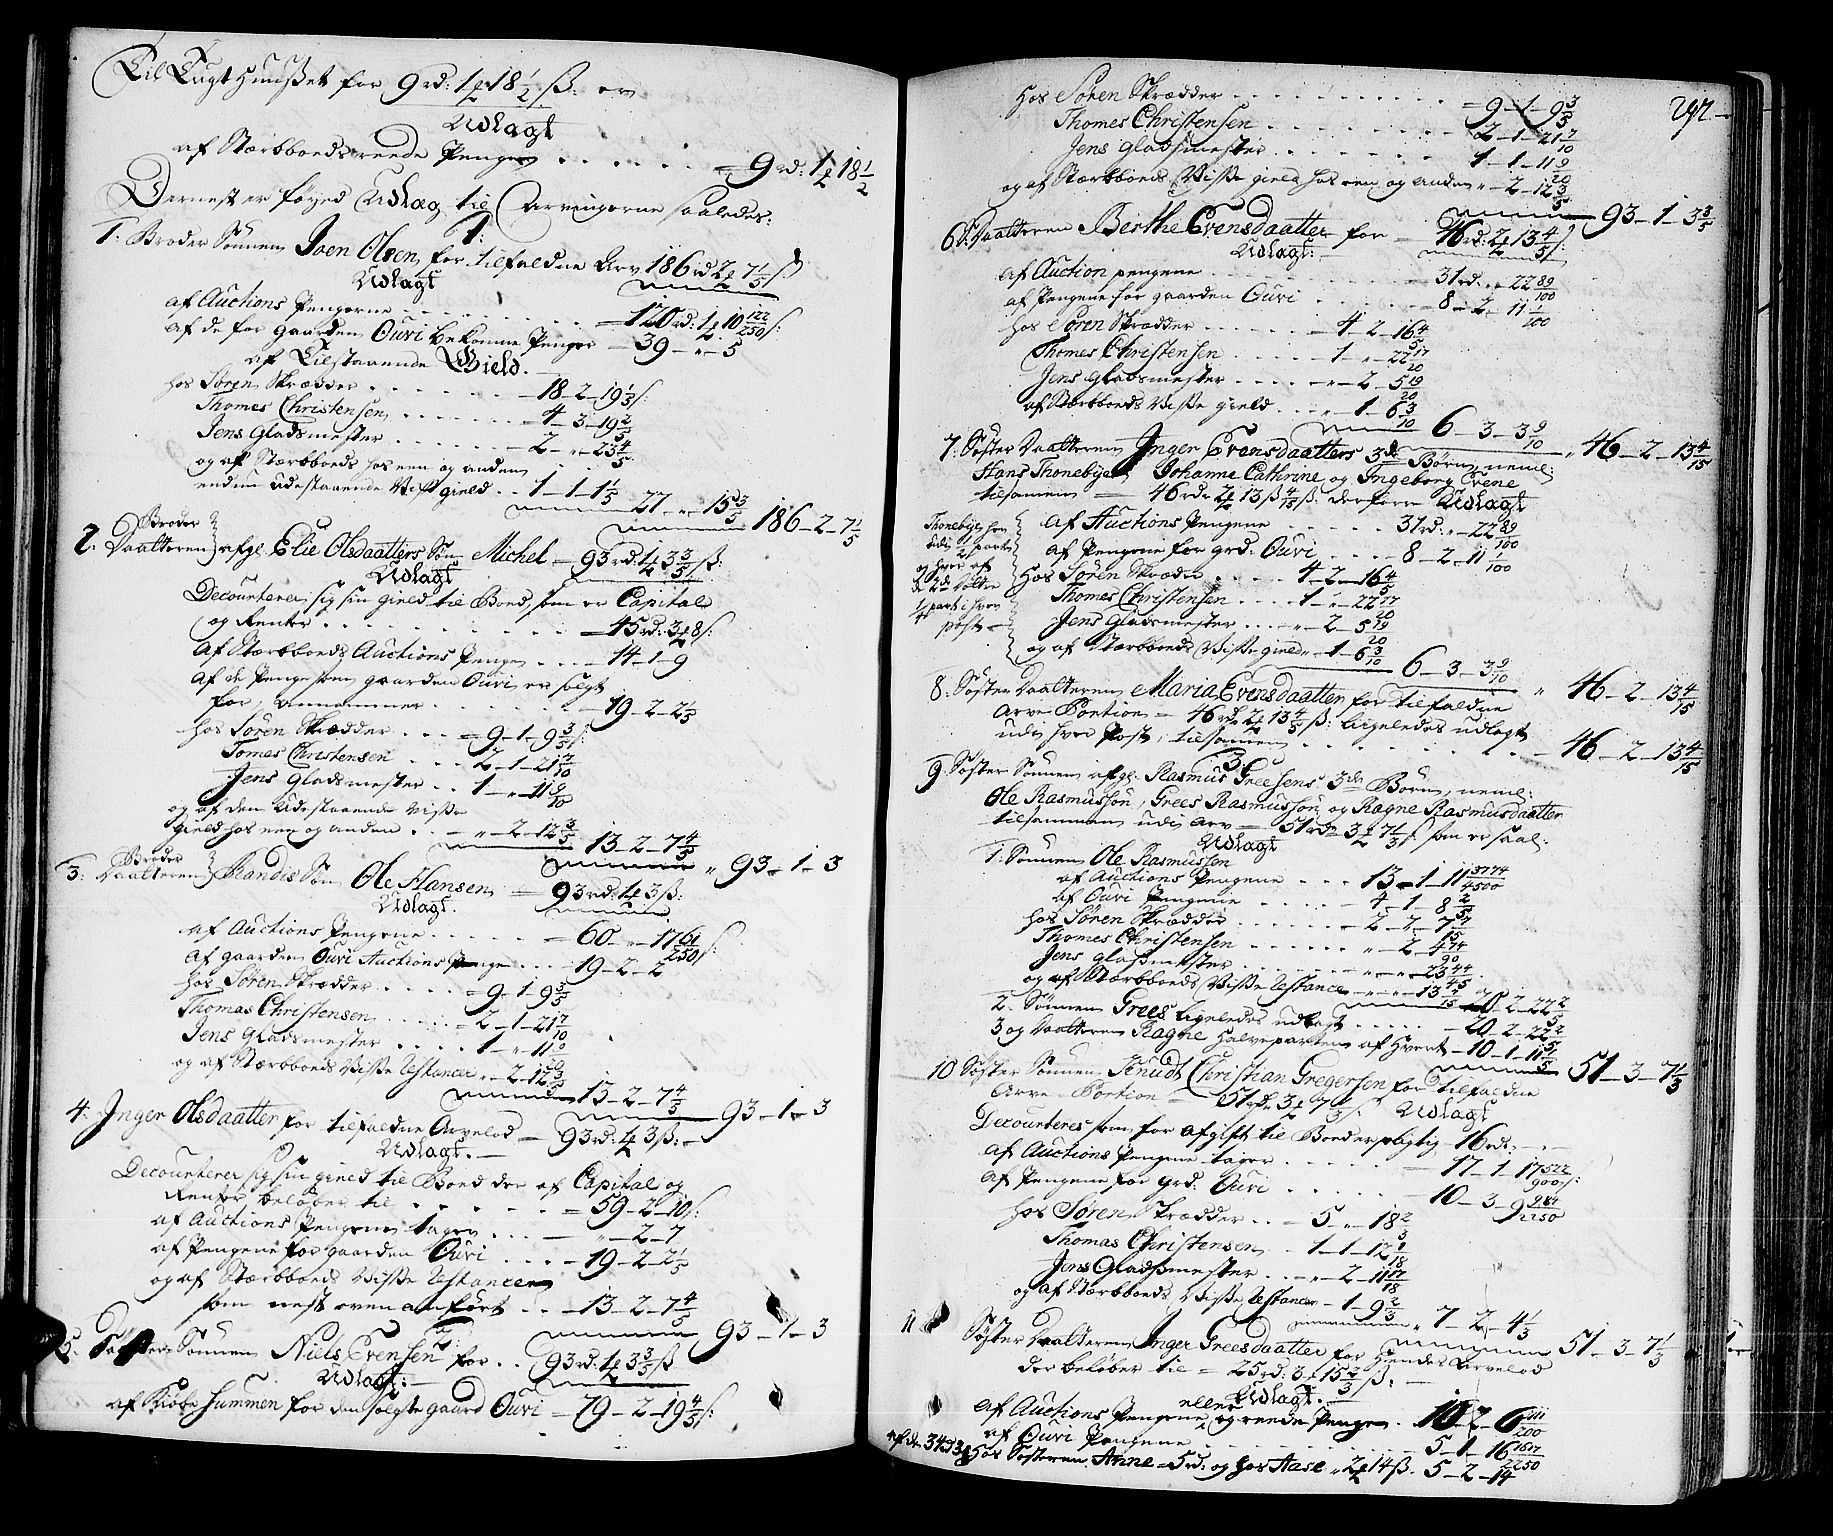 Til Tugthuuset for 9 rd: 1 18 1/2 ß: er
Udlagt
af Stærbboeds reede Penge . . . . . . = 9 rd: 1 18 1/2
Dernest er føyed Udlag til Arvingerne saaledes.
1: Broder Sønnen Joen Olsen, for tilfaldne Arv 186 rd 2 7 1/5 ß
Udlagt
af Auctions Pengerne . . . . . = 120 rd: 1 10 122/250 ß:
af de for gaarden Ouri bekomne Penger = 39 - " - 5
af Tilstaaende Gield.
hos Søren Skrædder . . . . . . - 18 - 2 - 19 1/3 ß:
Thomes Christensen . . . . . . - 4 - 3 - 19 2/5
Jens Gladsmester . . . . . - 2 - " - 23 4/5
og af Stærbboeds hos een og anden
endnu udestaaende Visse gield . . 1 - 1 - 1 1/5 27 - " - 15 3/5 186 - 2 - 7 1/5
2: Broder Daatteren afgl. Elie Olsdaatters Søn Michel = 93 rd: 1 3 3/5 ß:
Udlagt
Decourterer sig sin gield til Boed, som er Capital
og Renter . . . . . . . . . . = 45 rd: 3 8 ß:
af Stærbboeds Auctions Penger . . . - 14 - 1 - 9
af de Penge som gaarden Ouri er solgt
for, annammer . . . . . . . - 19 - 2 - 2 1/5
hos Søren Skrædder . . . = 9 - 1 - 9 3/5 ß:
Tomes Christensen . . . 2 - 1 - 21 7/10
Jens Gladsmester . . 1 - " - 11 9/10
og af den Udestaaende Visse
gield hos een og anden . . - " - 2 - 12 3/5 13 - 2 - 7 4/5 " 93 - 1 - 3
3: Broder Daatteren Randis Søn Ole Hansen = 93 rd: 1 3 ß:
Udlagt.
af Auctions Pengene . . . . . = 60 - " - 17 61/250 ß:
af gaarden Ouri Auctions Penge . . . - 19 - 2 - 2
hos Søren Skrædder . . . . = 9 - 1 - 9 3/5
Thomas Christensen . . . . = 2 - 1 - 21 7/10
Jens Gladsmester . . . . 1 - " - 11 9/20
og af Stærbboeds Visse Restancer " - 2 - 12 3/5 13 - 2 - 7 4/5 93 - 1 - 3
4: Inger Olsdaatter for tilfaldne Arvelod = 93 rd: 1 3 ß: -
Udlagt. -
Decourterer sig sin gield til Boed der af Capital og
Renter beløber til . . . . . . = 59 - 2 - 10 ß:
af Auctions Pengerne tager . . . - " - 2 - 7
af Pengene for gaarden Ouri . . . . - 19 - 2 - 2 1/5
og af Stærbboeds Visse Restancer
som nest oven anført . . . - 13 - 2 - 7 4/5 93 - 1 - 3
5: Søster Sønnen Niels Evensen for . . 93 rd: 1 3 3/5 ß
Udlagt: -
af Kiøbe Summen for den solgte gaard Ouri = 79 - 2 - 19 4/5 ß:
292
hos Søren Skrædder . . . . . . . . = 9 - 1 - 9 3/5
Thomes Christensen . . . . . . . 2 - 1 - 21 7/10
Jens gladsmester . . . . . . 1 - 1 - 11 9/20
og af Stærbboeds Visse gield hos een og anden " - 2 - 12 3/5 93 - 1 - 3 3/5
6 S. Daatteren Berthe Evensdaatter for = 46 rd: 2 13 4/5 ß:
Udlagt: -
af Auction pengene . . . . . . . - 31 rd: " - 22 89/100
af Pengene for gaarden Ouri . . . . . 8 - 2 - 11 1/100
hos Søren Skrædder . . . . . - 4 - 2 - 16 4/5
Thomes Christensen . . . . - 1 - " - 22 17/20
Jens gladsmester . . . . " - 2 - 5 19/20
af Stærbboeds Visse gield . . . " - 1 - 6 3/10 6 - 3 - 3 9/10 " 46 - 2 - 13 4/15
7: Søster Daatteren Inger Evensdaatters 3de Børn, neml:
Hans Thonebye, Johanne Cathrine, og Ingeborg Evene
tilsamen = 46 rdr 2 13 ß 4/15 ß: derforre Udlagt
Thonebye hev
udi 1/2 parten
og hver af
de 2de Døttre
1/4 part i hver
post -
af Auctions Pengene . . . . . . 31 rd: " - 22 89/100
af Pengene for grd: Ouri . . . . 8 - 2 - 11 1/100
hos Søren Skrædder . . . . . 4 - 2 - 16 4/5
Thomes Christensen . . . . 1 - " - 22 17/20
Jens Gladsmester . . . . " - 2 - 5 19/20
og af Stærbboeds Visse gield " - 1 - 6 3/10 6 - 3 - 3 9/10 " 46 - 2 - 13 4/15
8: Søster Daatteren Maria Evensdaatter for tilfaldne
Arve Portion = 46 rdr 2 13 4/5 ß: ligeledes udlagt
udi hver Post, tilsamen . . . . . . . . . - 46 - 2 - 13 4/15
9 Søster Sønnen, afgl. Rasmus Greesens 3de Børn, neml:
Ole Rasmussøn, Grees Rasmussøn og Ragne Rasmusdaatter
tilsammen udi Arv = 51 rdr 3 7 1/3 ß som er saal:
Udlagt
1: Sønnen Ole Rasmussøn
af Auctions Pengene . . . . 13 - 1 - 11 3774/4500
af Ouri Pengene . . . . . - 4 - 1 - 8 2/5
hos Søren Skrædder . . . . . - 2 - 2 - 7 7/15
Thomes Christensen . . . . . . " - 2 - 4 74/90
Jens glasmester . . . . . . . " - " - 23 44/45
og af Stærbboeds Visse Restance - " - " - 13 2/15 20 - 2 - 22 2/5
2. Sønnen Grees ligeledes udlagt . . . . . - 20 - 2 - 22 2/5
3 og Daatteren Ragne halveparten af hvert - 10 - 1 - 11 1/5 51 - 3 - 7 1/3
10 Søster Sønnen Knudt Christian Gregersen for tilfaldne
Arve-Portion = 51 rdr 3 7 1/3 ß: Udlagt
Decourteres som for afgift til Boed er plegtig - 16 rdr: - -
af Auctions Pengene tager . . . . . . - 17 - 1 - 17 522/900 ß:
af Pengene for grd: Ouri . . . . . . . - 10 - 3 - 9 984/2250
hos Søren Skrædder . . = 5 " - 18 2/3
Thomas Christensen . - 1 - 1 - 12 1/18
Jens Gladsmester . . - " - 2 - 11 17/18
og af Stærbboeds Visse Restancer - 1 - 9 2/3 " 7 - 2 - 4 1/3 51 - 3 - 7 1/3
11 Søster Daatteren Inger Greesdaatter for hendes Arvelod
der beløber til = 25 rd: 3 15 2/3 ß: -
Udlagt. -
af Auctions Pengene eller og reede Penger . 10 - 2 - 6 111/200
af Ouri Pengene . . . . . . . . . 5 - 1 - 16 1617/2250
af de 34 rd 3 hos Søsteren Anne = 5 rd: og hos Aase " 2 14 ß. 5 - 2 - 14